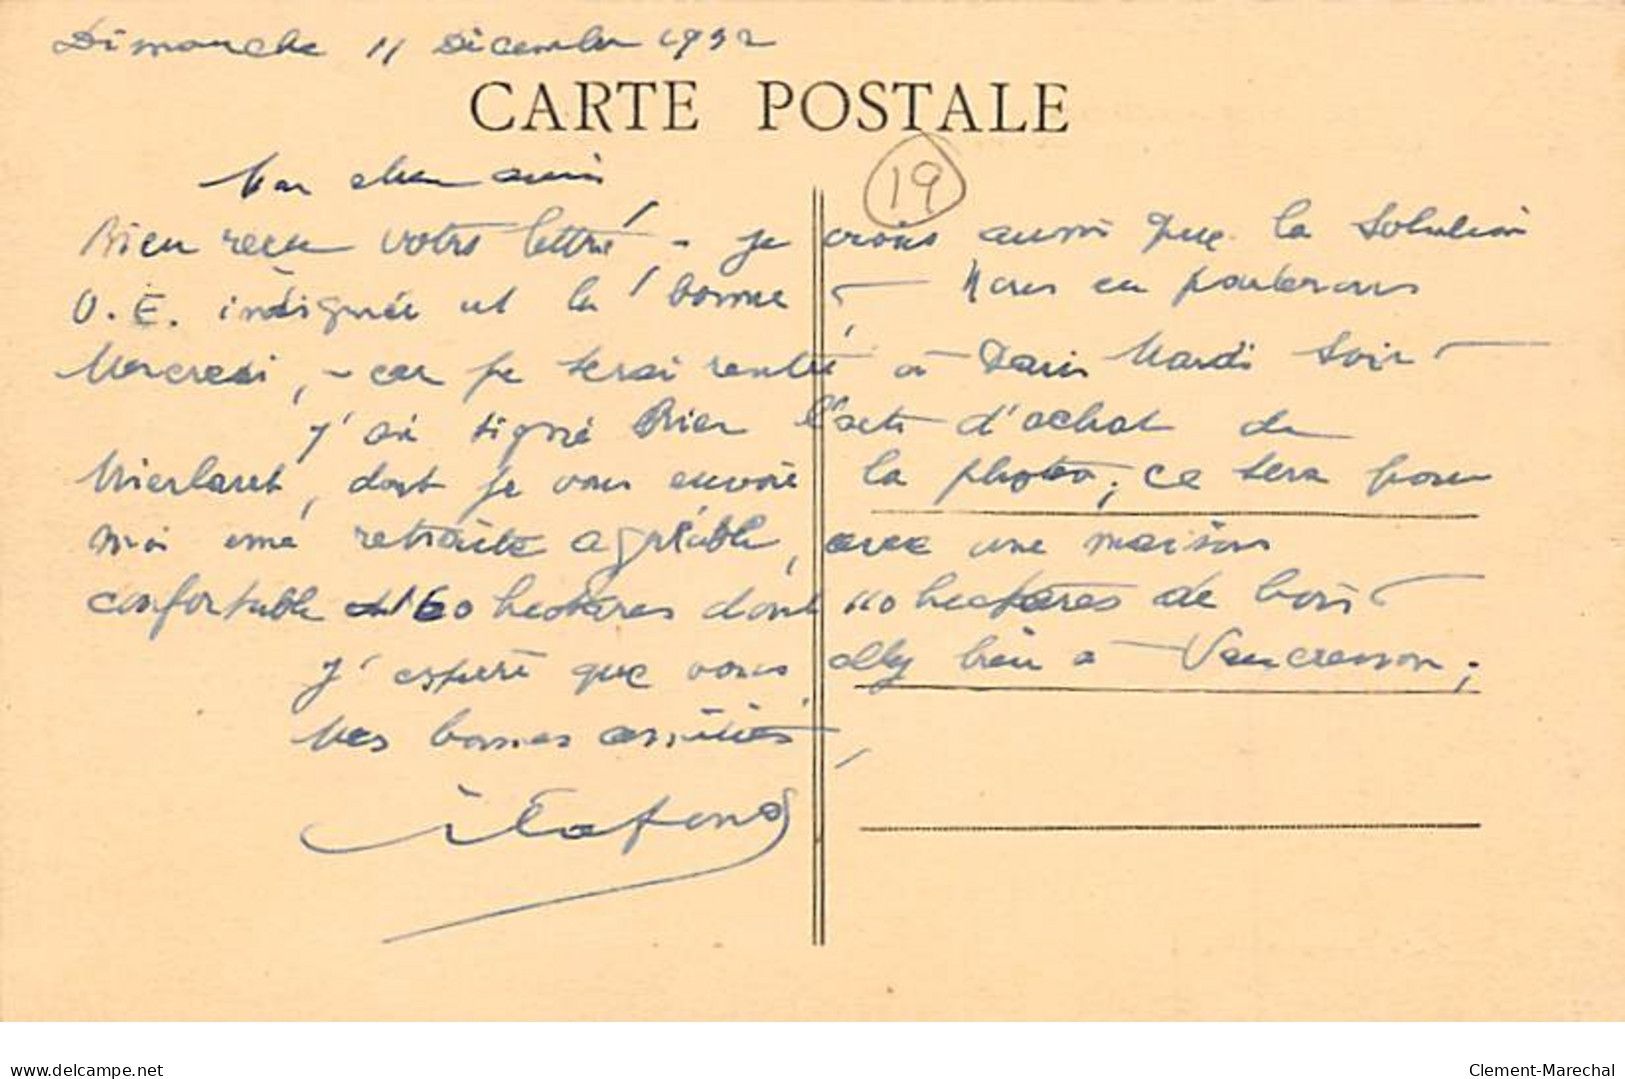 Dimanche 11 Décembre 1932
CARTE POSTALE
19
Mon cher ami
Bien reçu votre lettre - je crois aussi que la solution
O.E. indiquée est la bonne - Nous en parlerons
Mercredi, - car je serai rentré à Paris Mardi soir -
J'ai signé hier l'acte d'achat de
dont je vous envoie la photo, ce sera pour
moi une retraite agréable, avec une maison
confortable et 160 hectares dont 110 hectares de bois -
J'espère que vous allez bien à Vaucresson ;
Mes bonnes amitiés,
delcampe.net
Clement-Marechal